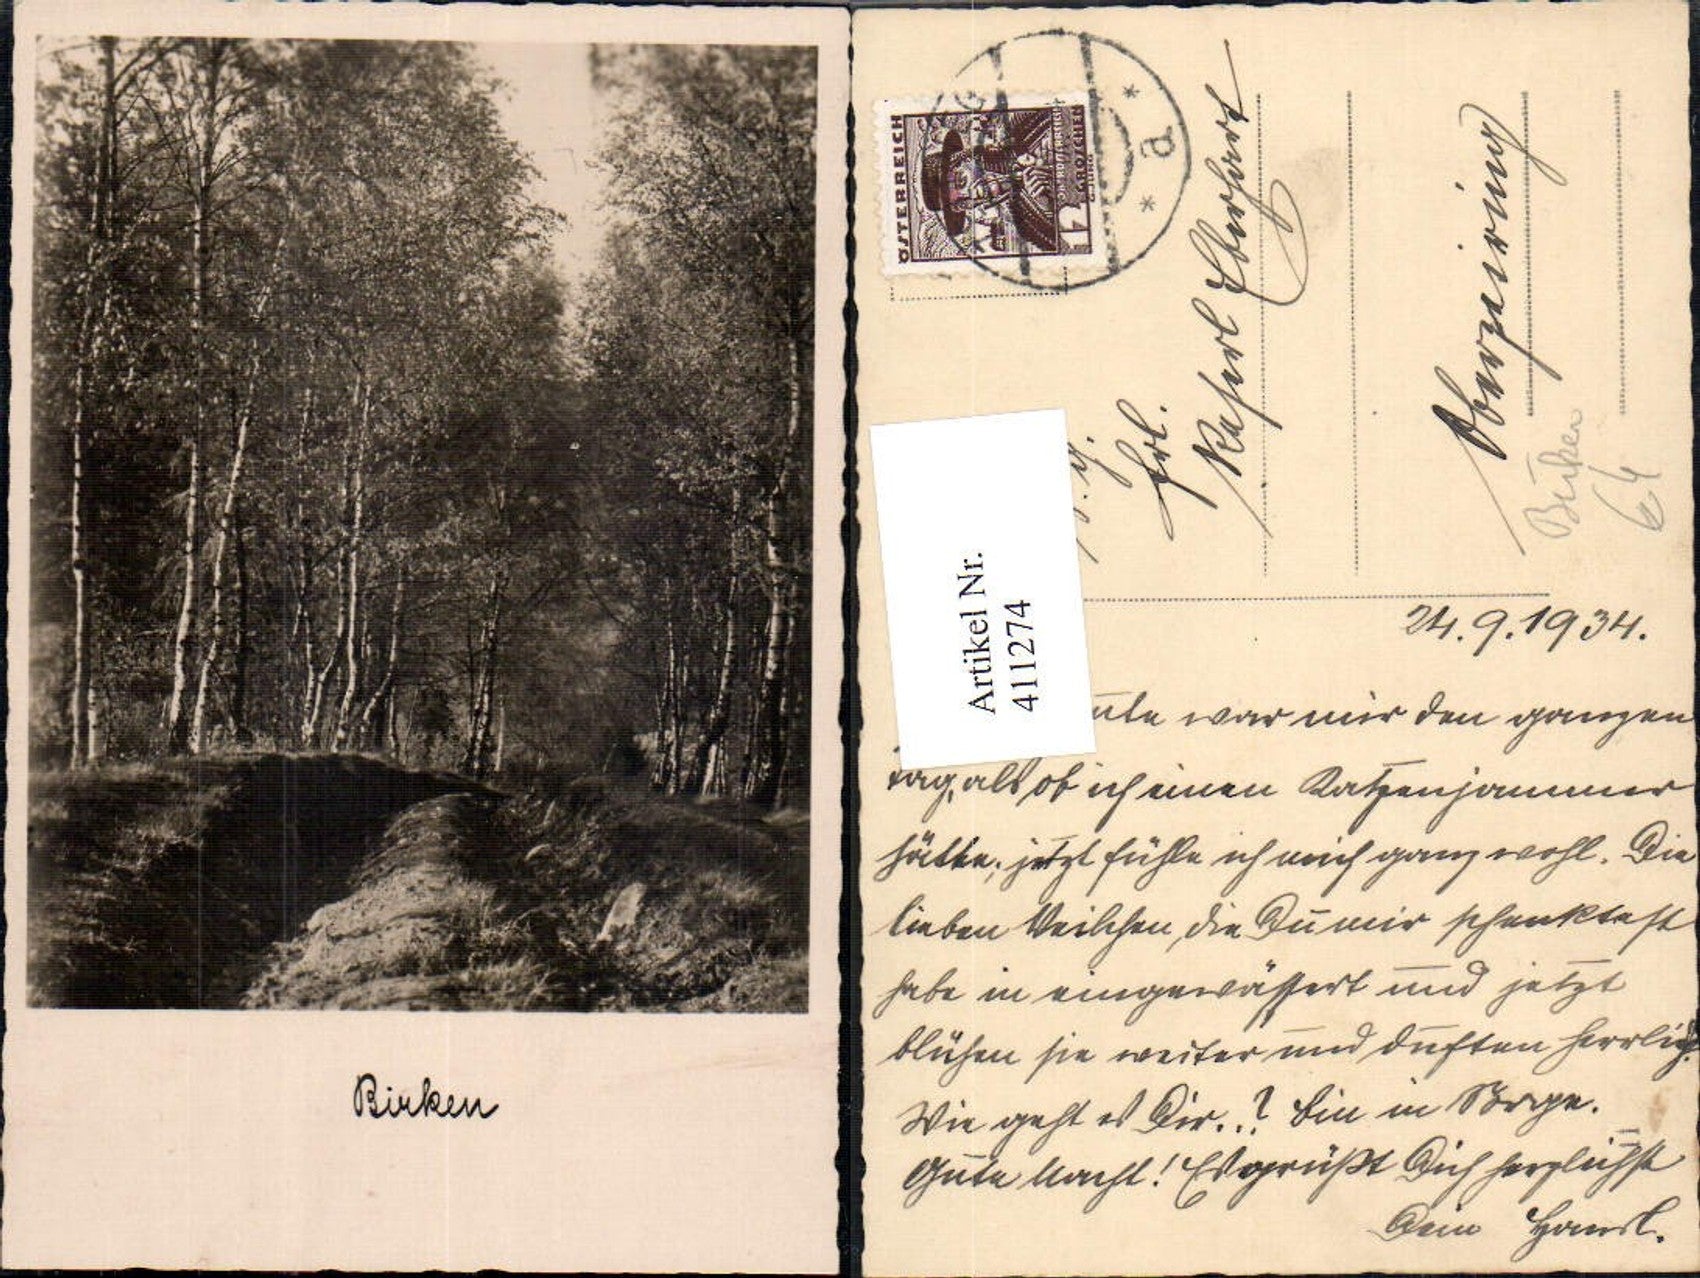 Birken
ÖSTERREICH
12 GROSCHEN
* a *
Frl.
Oberzeiring
Birken
64
Artikel Nr.
411274
24.9.1934.
war mir den ganzen
Tag, als ob ich einen Katzenjammer
hätte; jetzt fühle ich mich ganz wohl. Die
lieben Veilchen, die Du mir schenktest
habe ich eingewässert und jetzt
blühen sie weiter und duften herrlich.
Wie geht es Dir..? Bin in Sorge.
Gute Nacht! Es grüßt Dich herzlichst
Dein Hansl.